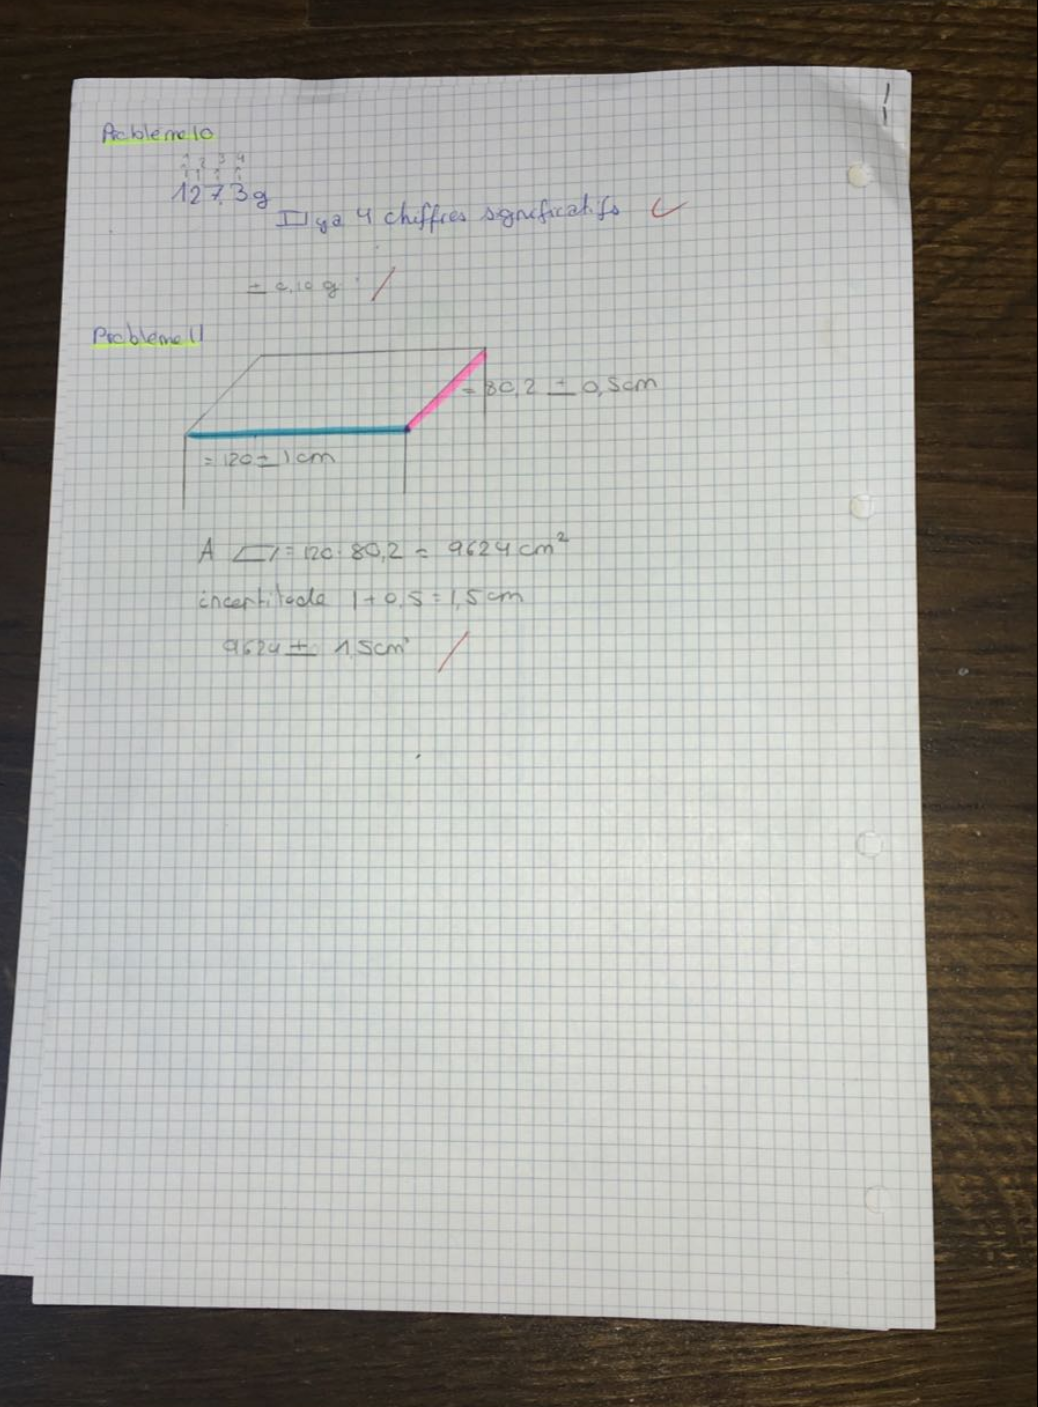 Probleme 10
1 2 3 4
127,3g
Il ya 4 chiffres significatifs
Probleme 11
= 80,2 ± 0,5cm
= 120 ± 1cm
A = 120 · 80,2 = 9624 cm²
1 + 0,5 = 1,5 cm
9624 ± 1,5cm²